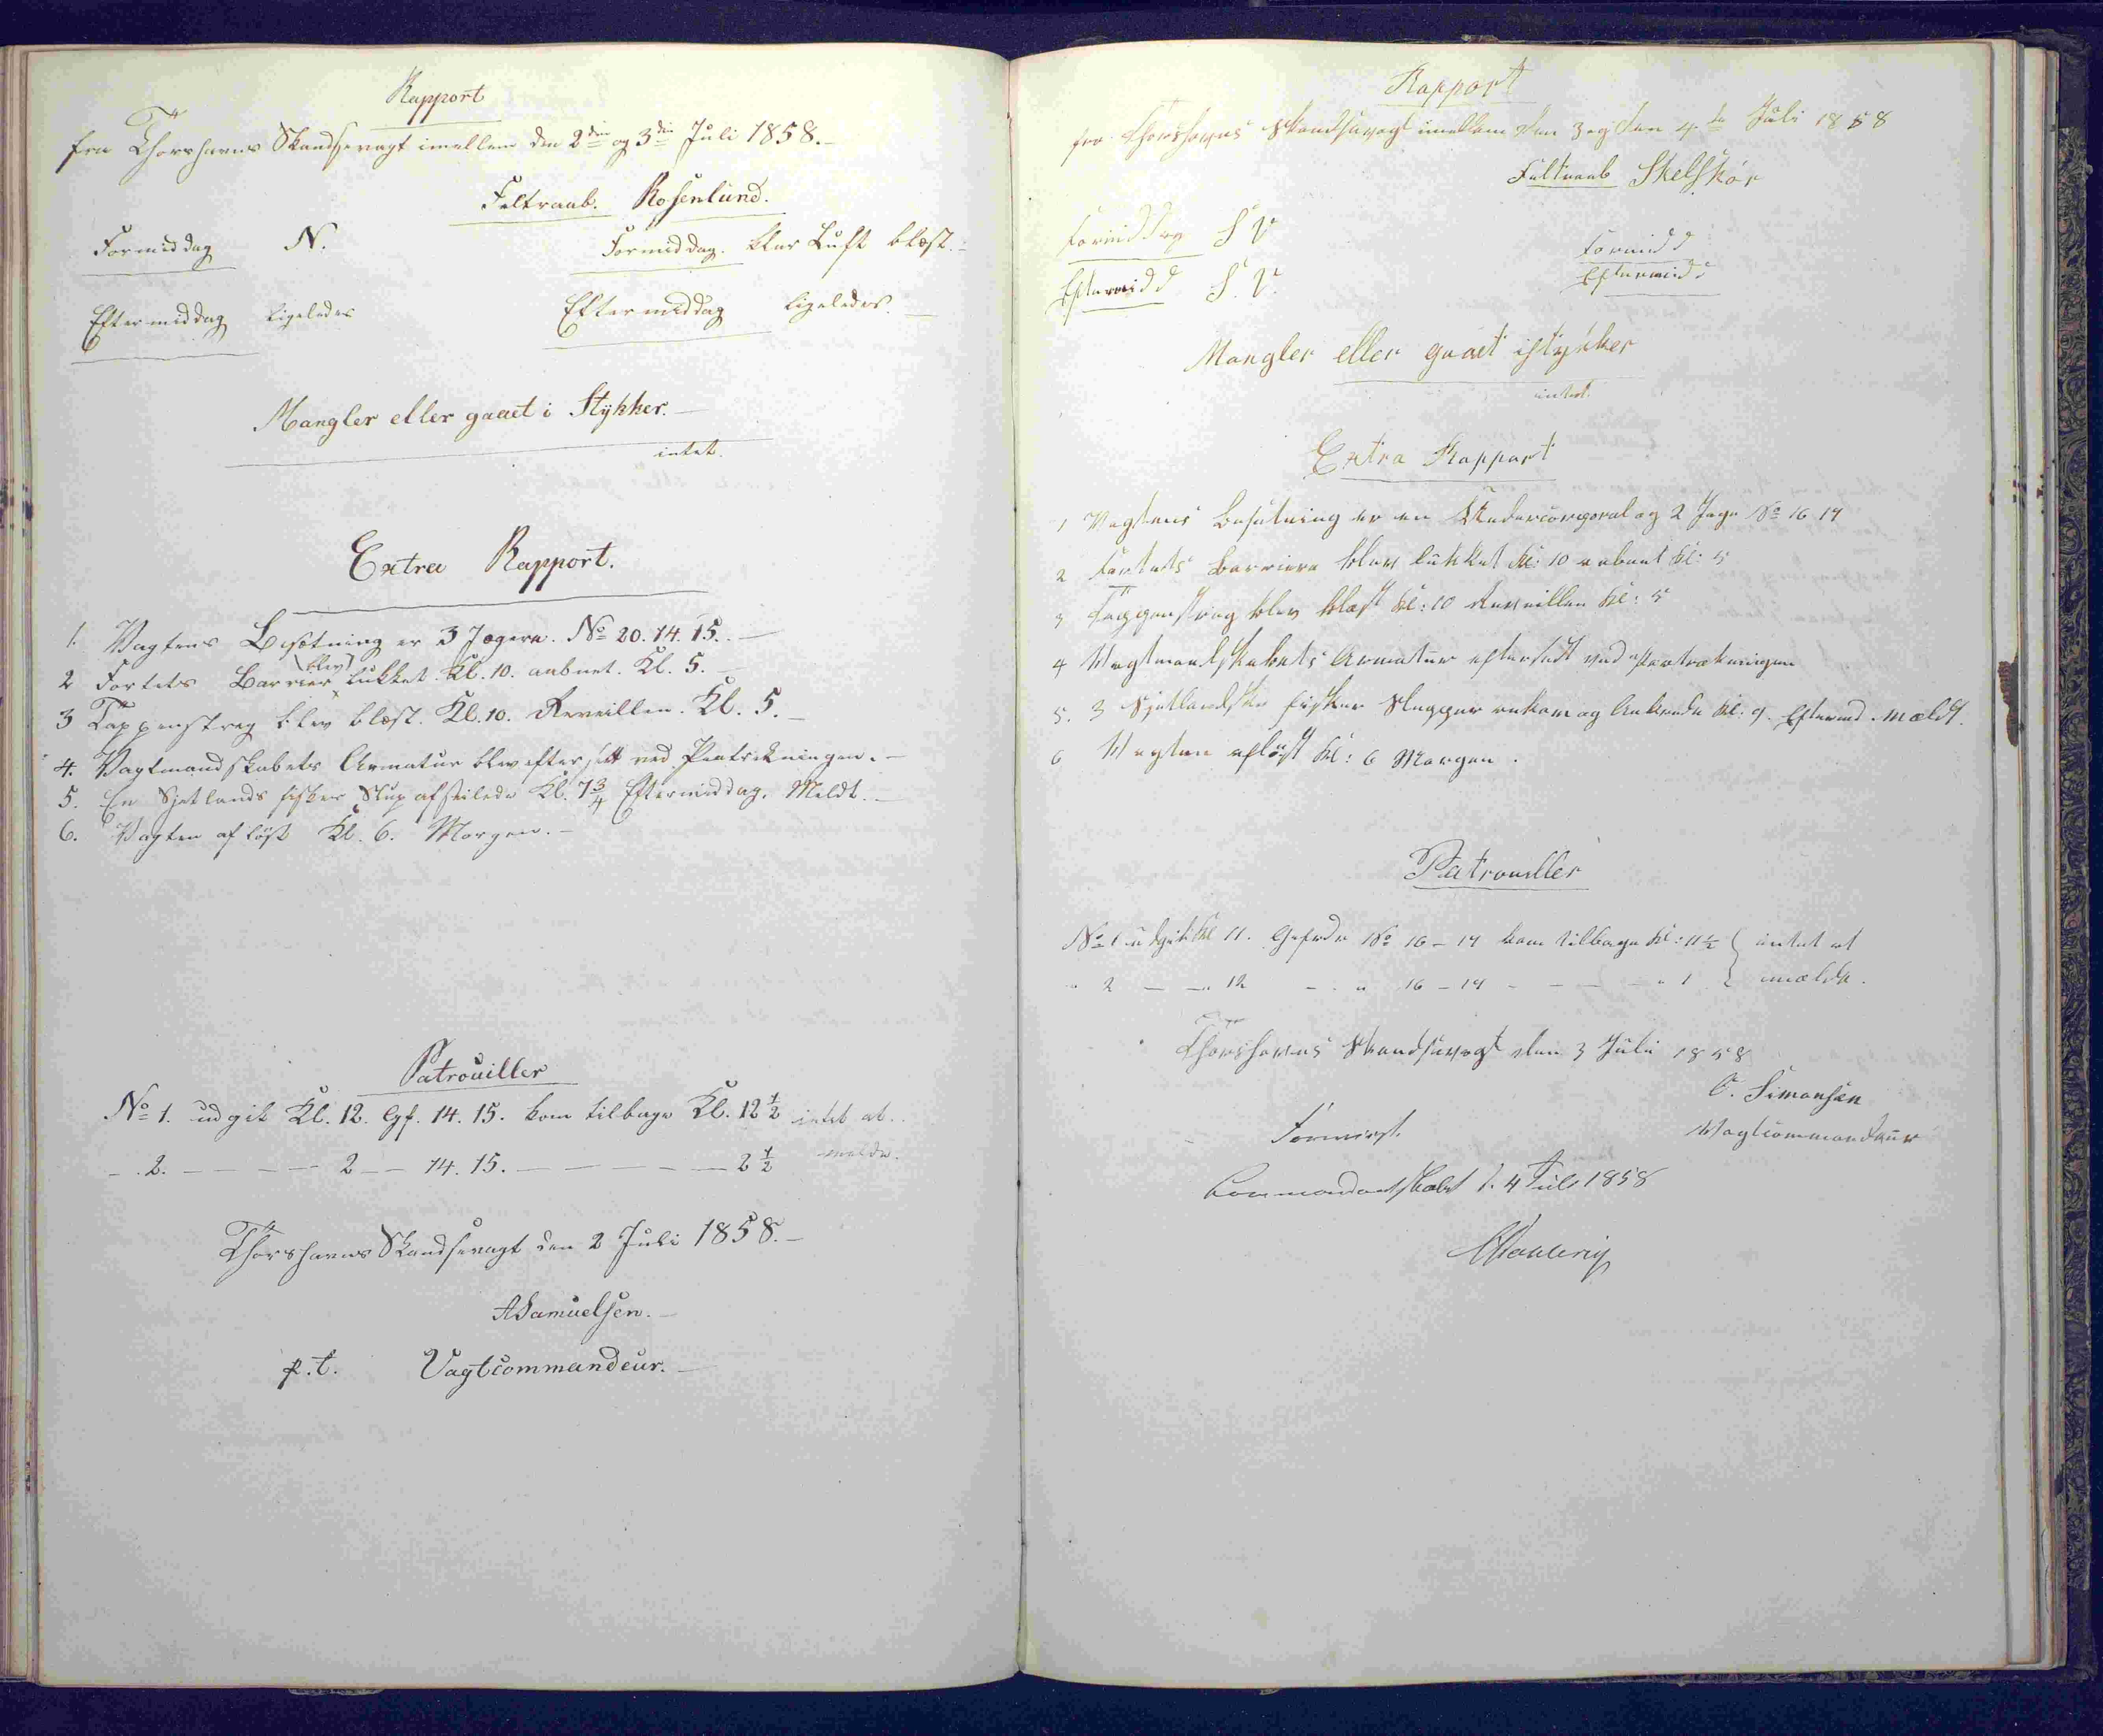 Rapport
fra Thorshavns Skandsevagt imellem den 2den og 3die Juli 1858.-
Feltraab. Rosenlund.
Formiddag N. Formiddag. klar Luft blæst.-
Eftermiddag ligeledes Eftermiddag ligeledes.-
Mangler eller gaaet i Stykker.-
intet.
Extra Rapport.
1. Vagtens Besætning er 3 Jægere. No 20. 14. 15.-
2 Fortets Barrier blev lukket. Kl. 10. aabnet. Kl. 5.-
3 Tappenstreg blev blæst. Kl. 10. Reveillen. Kl. 5.-
4. Vagtmandskabets Armatur blev efterseet ved Paatrækningen.-
5. En Sjetlands fisker Slup afseilede Kl. 7 3/4 Eftermiddag. Meldt.-
6. Vagten afløst Kl. 6. Morgen.-
Patrouiller
No 1. udgik Kl. 12. Gef. 14. 15. kom tilbage Kl. 12 1/2 intet at
- . 2. - - - - - 2 - - 14. 15. - - - - - - 2 1/2 melde.
Thorshavns Skandsevagt den 2 Juli 1858.-
ASamuelsen.-
p.t. Vagtcommandeur.-
Rapport
fra Thorshavns Skandsevagt imellem den 3 og den 4de Juli 1858
Feltraab Skelskør
Formiddag S V Formidd
Eftermidd S. V. Eftermidd
Mangler eller gaaet istykker
intet.
Extra Rapport
1 Vagtens Besætning er en Undercorporal og 2 Jæge No 16 14
2 Fortets Barriere blev lukket Kl: 10 aabnet Kl: 5
3 Tappenstreg blev blæst Kl: 10 Reveillen Kl: 5
4 Vagtmandskabets Armatur efterseet ved Paatrækningen
5. 3 Sjetlandske fisker Slupper ankom og Ankrede Kl: 9. Eftermd. Mældt.
6 Vagten afløst Kl: 6 Morgen.
Patrouiller
No 1 udgik Kl 11. Gefrde No 16 - 14 kom tilbage Kl: 11 1/2 intet at
" 2 - -" 12 - . " 16 - 14 - - - - " 1 mælde.
Thorshavns Skandsevagt den 3 Juli 1858
O. Simonsen
Foreviist. Vagtcommandeur
Commandantskabet d. 4 Juli 1858